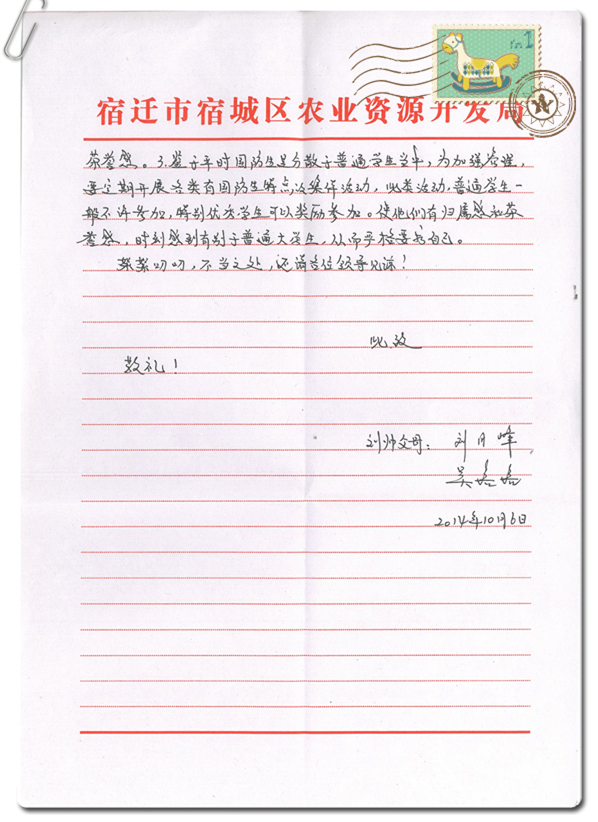 宿迁市宿城区农业资源开发局
1
荣誉感。3.鉴于平时国防生是分散于普通学生当中，为加强管理，
要定期开展各类有国防生特点的集体活动，此类活动，普通学生一
般不许参加，特别优秀学生可以奖励参加。使他们有归属感和荣
誉感，时刻感到有别于普通大学生，从而严格要求自己。
絮絮叨叨，不当之处，还请各位领导见谅！
此致
敬礼！
刘帅父母：刘月峰
吴
2014年10月6日